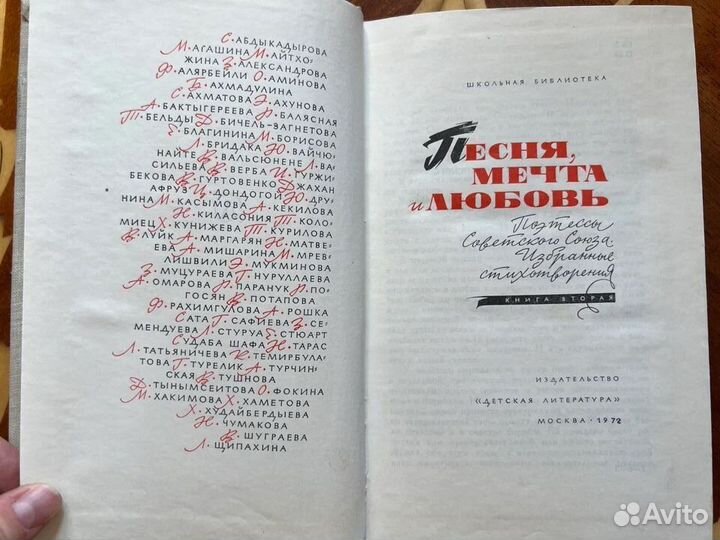 С. АБДЫКАДЫРОВА
М. АГАШИНА М. АЙТХО-
ЖИНА З. АЛЕКСАНДРОВА
Ф. АЛЯРБЕЙЛИ О. АМИНОВА
Б. АХМАДУЛИНА
С. АХМАТОВА Э. АХУНОВА
А. БАКТЫГЕРЕЕВА Р. БАЛЯСНАЯ
Т. БЕЛЬДЫ Д. БИЧЕЛЬ-ЗАГНЕТОВА
Е. БЛАГИНИНА М. БОРИСОВА
Л. БРИДАКА Ю. ВАЙЧЮ-
НАЙТЕ В. ВАЛЬСЮНЕНЕ Л. ВА-
СИЛЬЕВА В. ВЕРБА И. ГУРЖИ-
БЕКОВА В. ГУРТОВЕНКО ДЖАХАН
АФРУЗ Ц. ДОНДОГОЙ Ю. ДРУ-
НИНА М. КАСЫМОВА А. КЕКИЛОВА
Н. КИЛАСОНИЯ Т. КОЛО-
МИЕЦ Х. КУНИЖЕВА Т. КУРИЛОВА
В. ЛУЙК А. МАРГАРЯН Н. МАТВЕ-
ЕВА А. МИШАРИНА М. МРЕВ-
ЛИШВИЛИ Э. МУКМИНОВА
З. МУЦУРАЕВА Г. НУРУЛЛАЕВА
А. ОМАРОВА Р. ПАРАНУК Р. ПО-
ГОСЯН В. ПОТАПОВА
Ф. РАХИМГУЛОВА А. РОШКА
САТА Г. САФИЕВА З. СЕ-
МЕНДУЕВА Л. СТУРУА Е. СТЮАРТ
СУДАБА ШАФА Н. ТАРАС
Л. ТАТЬЯНИЧЕВА К. ТЕМИРБУЛА-
ТОВА Г. ТУРЕЛИК А. ТУРЧИН-
СКАЯ В. ТУШНОВА
Д. ТЫНЫМСЕИТОВА О. ФОКИНА
М. ХАКИМОВА Х. ХАМЕТОВА
Х. ХУДАЙБЕРДЫЕВА
Н. ЧУМАКОВА
В. ШУГРАЕВА
Л. ЩИПАХИНА
ШКОЛЬНАЯ БИБЛИОТЕКА
ПЕСНЯ,
МЕЧТА
и ЛЮБОВЬ
Поэтессы
Советского Союза.
Избранные
стихотворения
КНИГА ВТОРАЯ
ИЗДАТЕЛЬСТВО
«ДЕТСКАЯ ЛИТЕРАТУРА»
МОСКВА · 1972
Avito